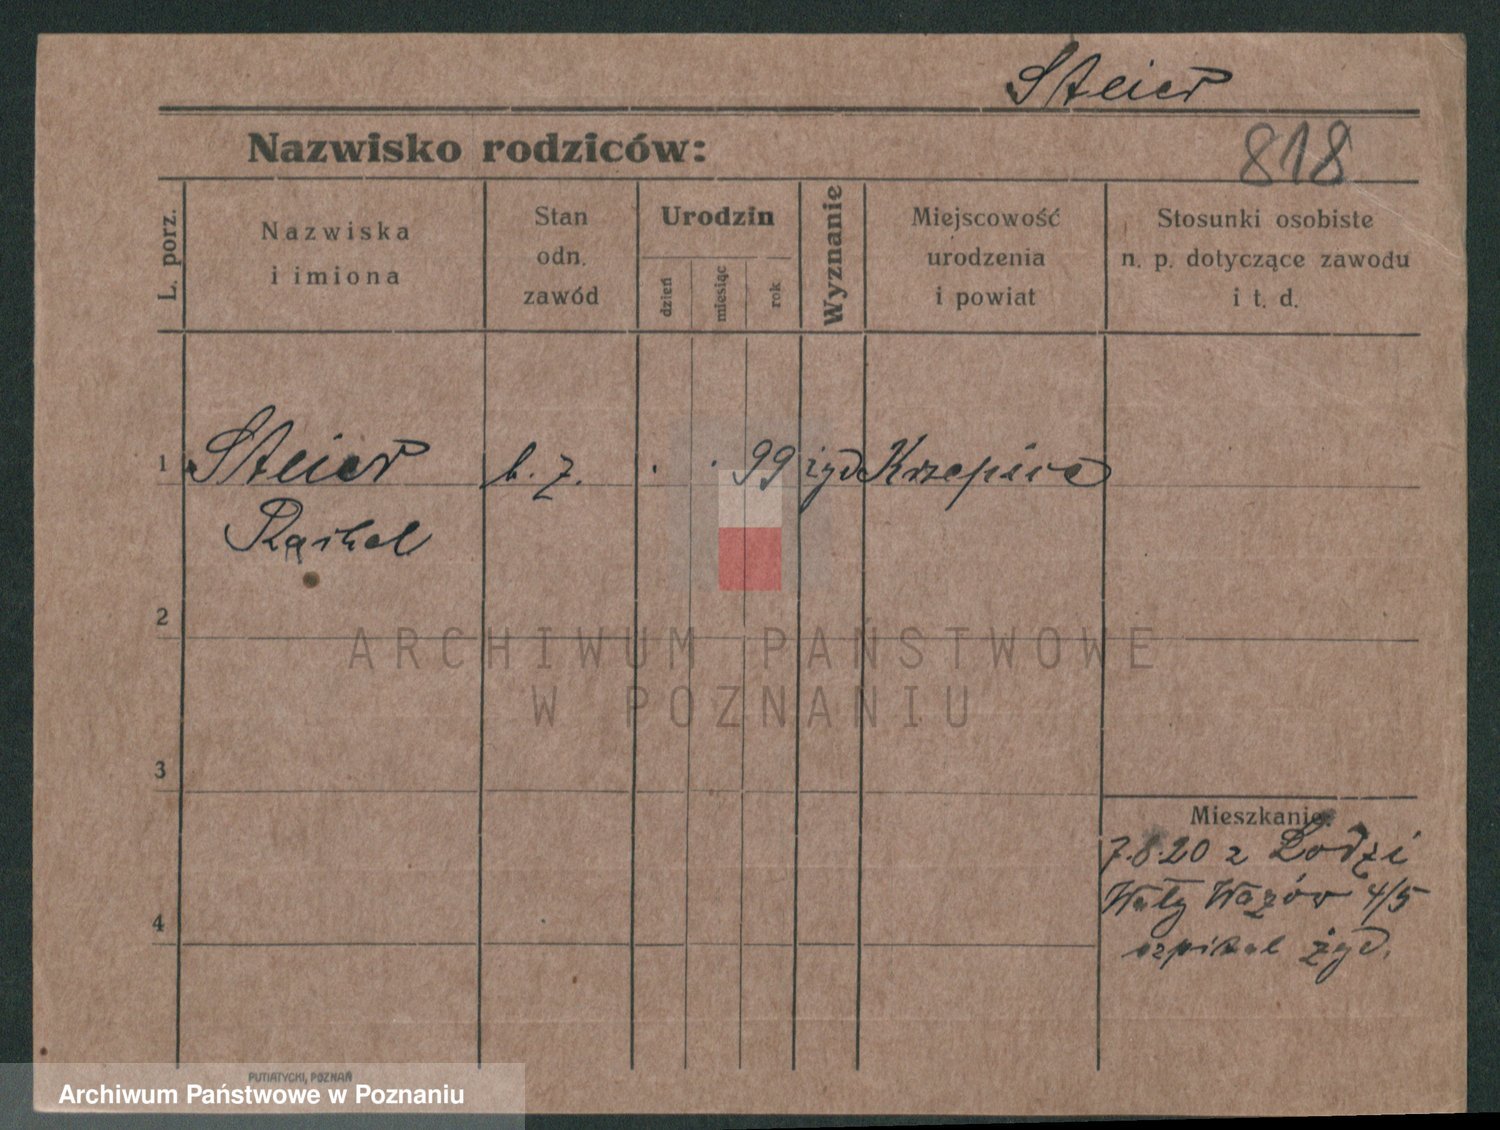 Steier
Nazwisko rodziców:
818
L. porz.
Nazwiska
i imiona
Stan
odn.
zawód
Urodzin
dzień
miesiąc
rok
Wyznanie
Miejscowość
urodzenia
i powiat
Stosunki osobiste
n. p. dotyczące zawodu
i t. d.
1
Steier
b. z.
. . 99
żyd
Krzepice
2
ARCHIWUM PAŃSTWOWE
W POZNANIU
3
Mieszkanie:
7.8.20 z Łodzi
Wały Wazów 4/5
szpital żyd.
4
PUTIATYCKI, POZNAŃ
Archiwum Państwowe w Poznaniu